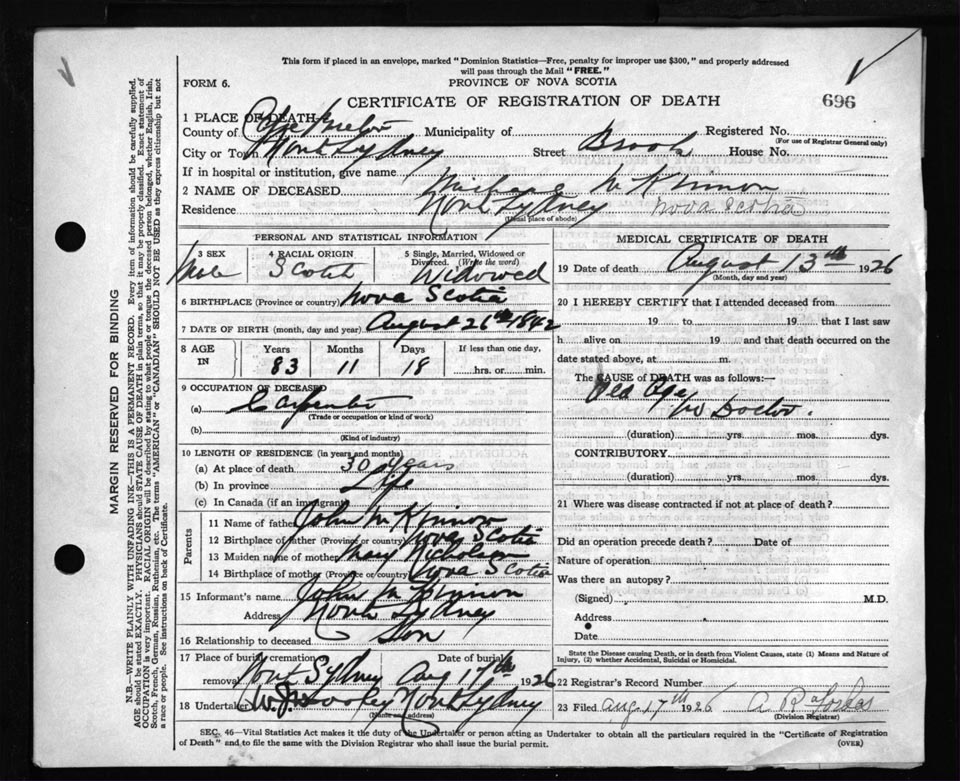 This form if placed in an envelope, marked "Dominion Statistics—Free, penalty for improper use $300," and properly addressed
will pass through the Mail "FREE."
FORM 6.
PROVINCE OF NOVA SCOTIA
CERTIFICATE OF REGISTRATION OF DEATH
696
1 PLACE OF DEATH—
County of Cape Breton Municipality of Registered No.
(For use of Registrar General only)
City or Town North Sydney Street Brook House No.
If in hospital or institution, give name
2 NAME OF DECEASED. Michael McKinnon
Residence North Sydney Nova Scotia
(Usual place of abode)
PERSONAL AND STATISTICAL INFORMATION
3 SEX 4 RACIAL ORIGIN 5 Single, Married, Widowed or
Divorced. (Write the word)
Male Scotch Widowed
6 BIRTHPLACE (Province or country) Nova Scotia
7 DATE OF BIRTH (month, day and year) August 26th 1842
8 AGE IN Years Months Days If less than one day,
83 11 18 hrs. or min.
9 OCCUPATION OF DECEASED
(a) Carpenter
(Trade or occupation or kind of work)
(b)
(Kind of industry)
10 LENGTH OF RESIDENCE (in years and months)
(a) At place of death 30 years
(b) In province Life
(c) In Canada (if an immigrant)
Parents
11 Name of father John McKinnon
12 Birthplace of father (Province or country) Nova Scotia
13 Maiden name of mother Mary Nicholson
14 Birthplace of mother (Province or country) Nova Scotia
15 Informant's name John McKinnon
Address North Sydney
16 Relationship to deceased Son
17 Place of burial, cremation Date of burial
removal North Sydney Aug 1926
18 Undertaker W. J. Dooley North Sydney
(Name and address)
MEDICAL CERTIFICATE OF DEATH
19 Date of death August 13th 1926
(Month, day and year)
20 I HEREBY CERTIFY that I attended deceased from
19 to 19 that I last saw
h alive on 19 and that death occurred on the
date stated above, at m.
The CAUSE of DEATH was as follows:—
Old Age
No Doctor.
(duration) yrs. mos. dys.
CONTRIBUTORY
(duration) yrs. mos. dys.
21 Where was disease contracted if not at place of death?
Did an operation precede death? Date of
Nature of operation
Was there an autopsy?
(Signed) M.D.
Address
Date
State the Disease causing Death, or in death from Violent Causes, state (1) Means and Nature of
Injury, (2) whether Accidental, Suicidal or Homicidal.
22 Registrar's Record Number
23 Filed Aug. 17th 1926 A R Forbes
(Division Registrar)
SEC. 46—Vital Statistics Act makes it the duty of the Undertaker or person acting as Undertaker to obtain all the particulars required in the "Certificate of Registration
of Death" and to file the same with the Division Registrar who shall issue the burial permit.
(OVER)
MARGIN RESERVED FOR BINDING
N.B.—WRITE PLAINLY WITH UNFADING INK—THIS IS A PERMANENT RECORD. Every item of information should be carefully supplied.
AGE should be stated EXACTLY. PHYSICIANS should STATE CAUSE OF DEATH in plain terms, so that it may be properly classified. Exact statement of
OCCUPATION is very important. RACIAL ORIGIN will be described by stating to what people or tongue the deceased person belonged, whether English, Irish,
Scotch, French, German, Russian, Ruthenian, etc. The terms "AMERICAN" or "CANADIAN" SHOULD NOT BE USED as they express citizenship but not
a race or people. See instructions on back of Certificate.